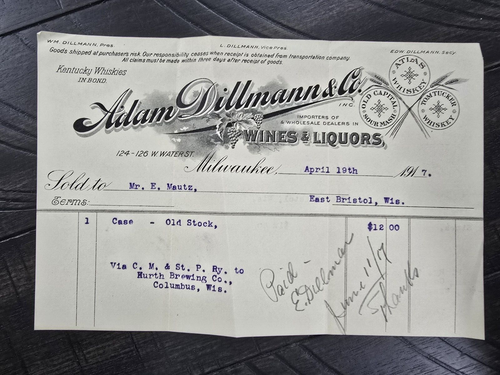 WM. DILLMANN, Pres.
L. DILLMANN, Vice Pres.
EDW. DILLMANN, Secy.
Goods shipped at purchasers risk. Our responsibility ceases when receipt is obtained from transportation company.
All claims must be made within three days after receipt of goods.
Kentucky Whiskies
IN BOND.
Adam Dillmann & Co.
INC.
IMPORTERS OF
& WHOLESALE DEALERS IN
WINES & LIQUORS
ATLAS
WHISKEY
OLD CAPITAL
SOUR MASH
WHISKEY
124-126 W. WATER ST.
Milwaukee, April 19th 1917.
Sold to Mr. E. Mautz,
East Bristol, Wis.
Terms:
1 Case - Old Stock, $12 00
Via C. M. & St. P. Ry. to
Hurth Brewing Co.,
Columbus, Wis.
Paid -
E. Dillman
June 11/17
Thanks